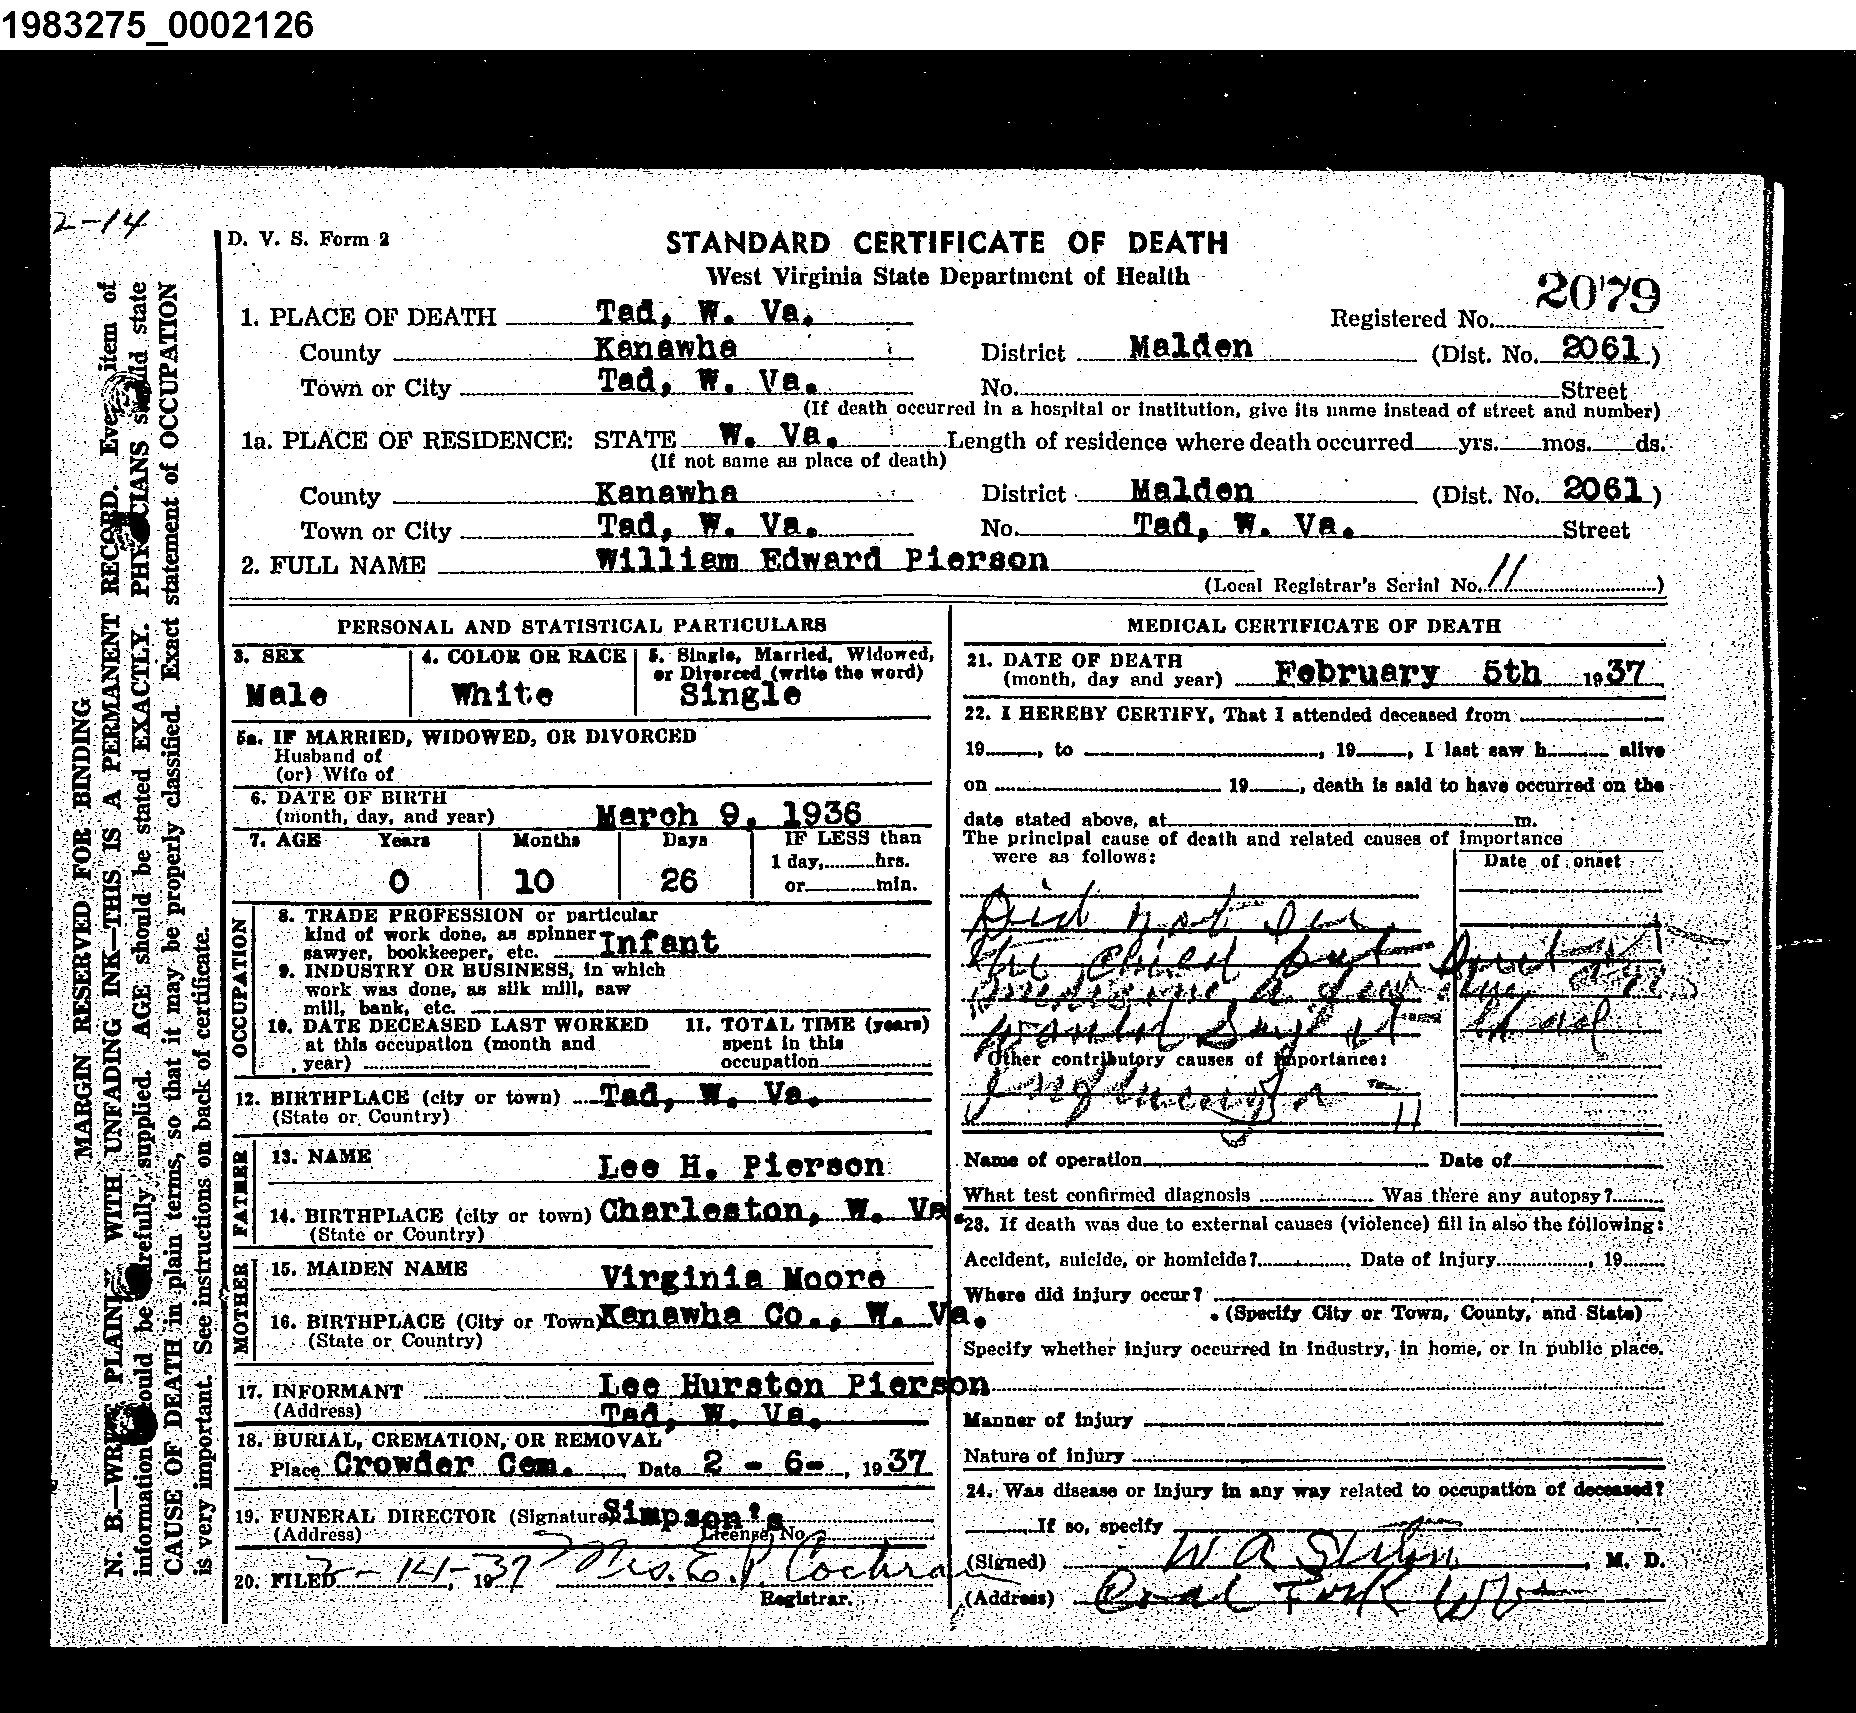 1983275_0002126
2-14
D. V. S. Form 2
STANDARD CERTIFICATE OF DEATH
West Virginia State Department of Health
2079
1. PLACE OF DEATH Tad, W. Va. Registered No.
County Kanawha District Malden (Dist. No. 2061)
Town or City Tad, W. Va. No. Street
(If death occurred in a hospital or institution, give its name instead of street and number)
1a. PLACE OF RESIDENCE: STATE W. Va. Length of residence where death occurred yrs. mos. ds.
(If not same as place of death)
County Kanawha District Malden (Dist. No. 2061)
Town or City Tad, W. Va. No. Tad, W. Va. Street
2. FULL NAME William Edward Pierson
(Local Registrar's Serial No. 11)
PERSONAL AND STATISTICAL PARTICULARS
3. SEX 4. COLOR OR RACE 5. Single, Married, Widowed,
or Divorced (write the word)
Male White Single
5a. IF MARRIED, WIDOWED, OR DIVORCED
Husband of
(or) Wife of
6. DATE OF BIRTH
(month, day, and year) March 9, 1936
7. AGE Years Months Days IF LESS than
1 day, hrs.
0 10 26 or min.
OCCUPATION
8. TRADE PROFESSION or particular
kind of work done, as spinner
sawyer, bookkeeper, etc. Infant
9. INDUSTRY OR BUSINESS, in which
work was done, as silk mill, saw
mill, bank, etc.
10. DATE DECEASED LAST WORKED 11. TOTAL TIME (years)
at this occupation (month and spent in this
year) occupation
12. BIRTHPLACE (city or town) Tad, W. Va.
(State or Country)
FATHER
13. NAME Lee H. Pierson
14. BIRTHPLACE (city or town) Charleston, W. Va.
(State or Country)
MOTHER
15. MAIDEN NAME Virginia Moore
16. BIRTHPLACE (City or Town) Kanawha Co., W. Va.
(State or Country)
17. INFORMANT Lee Hurston Pierson
(Address) Tad, W. Va.
18. BURIAL, CREMATION, OR REMOVAL
Place Crowder Cem. Date 2 - 6-, 1937
19. FUNERAL DIRECTOR (Signature) Simpson's
(Address) License, No.
20. FILED 2-14-, 1937 Mrs. E. P. Cochran
Registrar.
MEDICAL CERTIFICATE OF DEATH
21. DATE OF DEATH
(month, day and year) February 5th 1937
22. I HEREBY CERTIFY, That I attended deceased from
19, to, 19, I last saw h alive
on 19, death is said to have occurred on the
date stated above, at m.
The principal cause of death and related causes of importance
were as follows: Date of onset
Did not see
the child but
medicine a few days
Other contributory causes of importance:
Influenza
Name of operation Date of
What test confirmed diagnosis Was there any autopsy?
23. If death was due to external causes (violence) fill in also the following:
Accident, suicide, or homicide? Date of injury, 19
Where did injury occur?
(Specify City or Town, County, and State)
Specify whether injury occurred in industry, in home, or in public place.
Manner of injury
Nature of injury
24. Was disease or injury in any way related to occupation of deceased?
If so, specify
(Signed) W A, M. D.
(Address) Coal Fork W Va
MARGIN RESERVED FOR BINDING
N. B.—WRITE PLAINLY WITH UNFADING INK—THIS IS A PERMANENT RECORD. Every item of
information should be carefully supplied. AGE should be stated EXACTLY. PHYSICIANS should state
CAUSE OF DEATH in plain terms, so that it may be properly classified. Exact statement of OCCUPATION
is very important. See instructions on back of certificate.